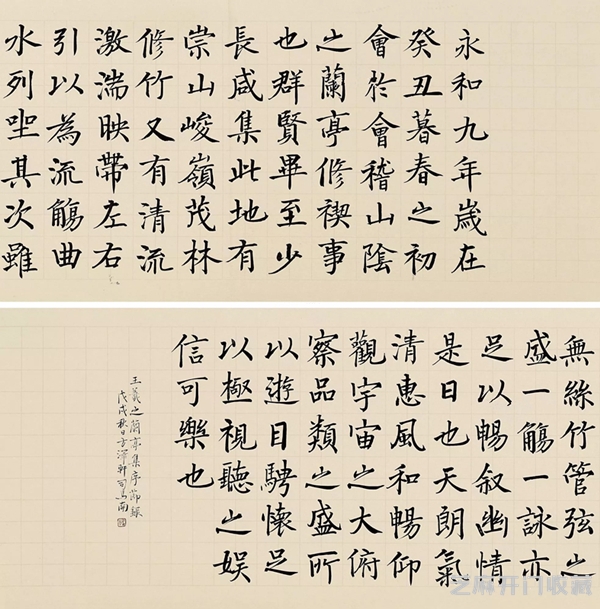 永和九年歲在
癸丑暮春之初
會於會稽山陰
之蘭亭修禊事
也群賢畢至少
長咸集此地有
崇山峻嶺茂林
修竹又有清流
激湍映帶左右
引以為流觴曲
水列坐其次雖
無絲竹管弦之
盛一觴一詠亦
足以暢叙幽情
是日也天朗氣
清惠風和暢仰
觀宇宙之大俯
察品類之盛所
以遊目騁懷足
以極視聽之娱
信可樂也
王羲之蘭亭集序節録
戊戌秋日方澤軒司馬南
芝麻开门收藏